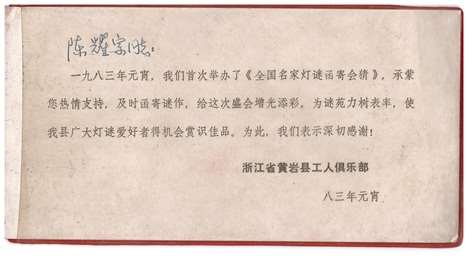 陈耀宗同志：
一九八三年元宵，我们首次举办了《全国名家灯谜函寄会猜》，承蒙
您热情支持，及时函寄谜作，给这次盛会增光添彩，为谜苑力树表率，使
我县广大灯谜爱好者得机会赏识佳品。为此，我们表示深切感谢！
浙江省黄岩县工人俱乐部
八三年元宵